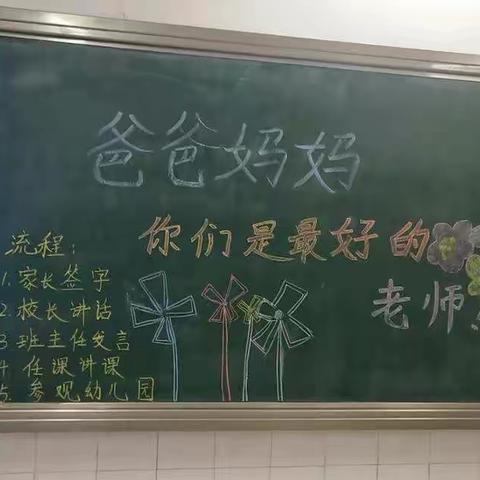 爸爸妈妈
你们是最好的
老师!
流程:
1.家长签字
2.校长讲话
3.班主任发言
4.任课讲课
5.参观幼儿园